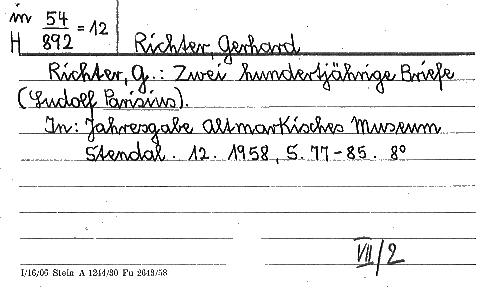 in 54
H 892 = 12
Richter, Gerhard
Richter, G.: Zwei hundertjährige Briefe
(Ludolf Parisius).
In: Jahresgabe Altmärkisches Museum
Stendal. 12. 1958, S. 77-85. 8°
VII/2
I/16/06 Stein A 1244/30 Fu 2643/58